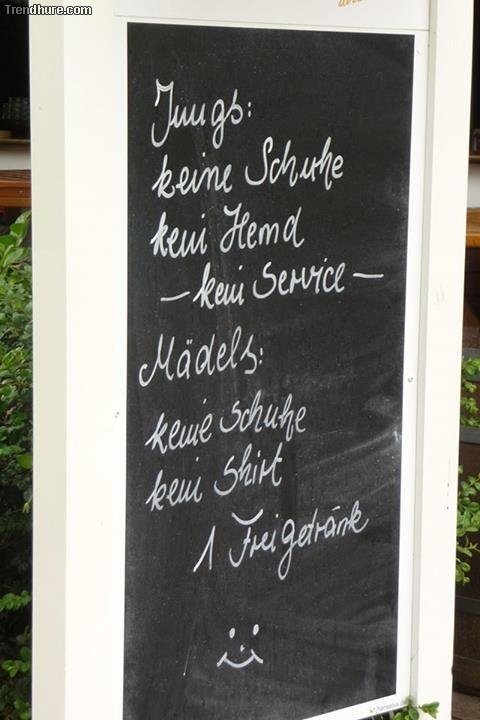 Trendhure.com
Jungs:
keine Schuhe
kein Hemd
– kein Service –
Mädels:
keine Schuhe
kein Shirt
1 Freigetränk